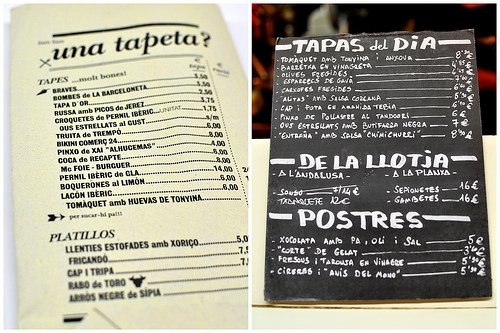 una tapeta?
TAPES ...molt bones!
BRAVES 3,50
BOMBES DE LA BARCELONETA 3,50
TAPA D´OR 2,50
RUSSA amb PICOS de JEREZ 3,75
CROQUETES de PERNIL IBÈRIC UNITAT 1,75
OUS ESTRELLATS al GUST s/m
TRUITA de TREMPÓ 6,00
BIKINI COMERÇ 24
PINXO de XAI "ALHUCEMAS" 4,00
COCA de RECAPTE 5,00
Mc FOIE - BURGUER 8,00
PERNIL IBÈRIC de GLA 14,00
BOQUERONES al LIMÓN 6,00
LACÓN IBÈRIC 6,00
TOMÀQUET amb HUEVAS de TONYINA
per sucar-hi pa!!!
PLATILLOS
LLENTIES ESTOFADES amb XORIÇO 5,0
FRICANDÓ 7,
CAP I TRIPA
RABO de TORO
ARRÒS NEGRE de SÍPIA
TAPAS del DIA
TOMAQUET AMB TONYINA i ANXOVA
BARRETXA EN VINAGRETA
OLIVES FREGIDES
ESPARRECS DE GAVÀ
CARXOFES FREGIDES 6€
"ALITAS" AMB SALSA COREANA
CAP i POTA EN AMANIDA TEBIA
PINXO DE POLLASTRE AL TANDOORI 6€
OUS ESTRELLATS AMB BUTIFARRA NEGRA 7€
"ENTRAÑA" AMB SALSA "CHIMICHURRI"
DE LA LLOTJA
A L'ANDALUSA - A LA PLANXA -
SONSO 7/14€ - SEPIONETES 16€
TABAQUETE 12€ GAMBETES 16€
POSTRES
- XOCOLATA AMB PA, OLI i SAL 5€
- "CORTE" DE GELAT
- PRESONS i TARONJA EN VINAGRE
- CIRERES i "ANIS DEL MONO"